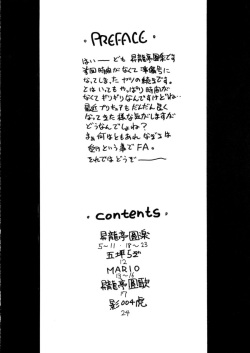 ・PREFACE・
はい── ども 昇龍亭圓楽です
前回時間がなくて準備号に
なってしまったヤツの続きです。
とはいってもやっぱり時間が
なくてギリギリなんですけどね…
最近プリキュアもだんだん良く
なってきた様な気がしますが
どうなんでしょね?
ま それはともあれ なぎさは
受けという事でFA。
それではどうぞ───
・contents・
昇龍亭圓楽
5～11・18～23
五坪5ℤ
12
MARIO
13～16
昇龍亭圓歌
17
影004虎
24